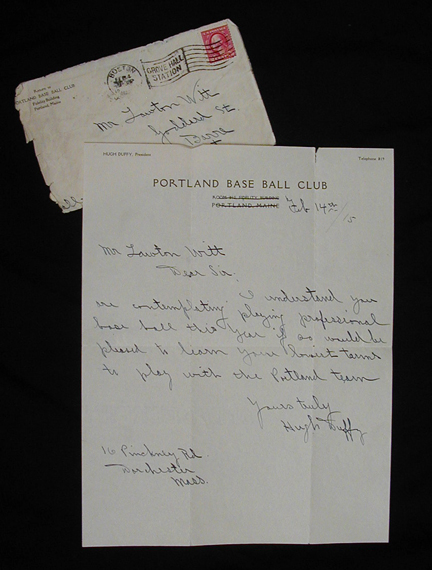 Return to
PORTLAND BASE BALL CLUB
Fidelity Building
Portland, Maine
BOSTON
GROVE HALL
STATION
Mr Lawton Witt
Goddard St.
HUGH DUFFY, President
Telephone 817
PORTLAND BASE BALL CLUB
ROOM FIDELITY BUILDING
PORTLAND, MAINE
Feb 14th/15
Mr Lawton Witt
Dear Sir.
I understand you
are contempleting playing professional
base ball this year if so would be
pleased to learn your lowest terms
to play with the Portland team
Yours truly
Hugh Duffy
16 Pinckney Rd
Dorchester
Mass.